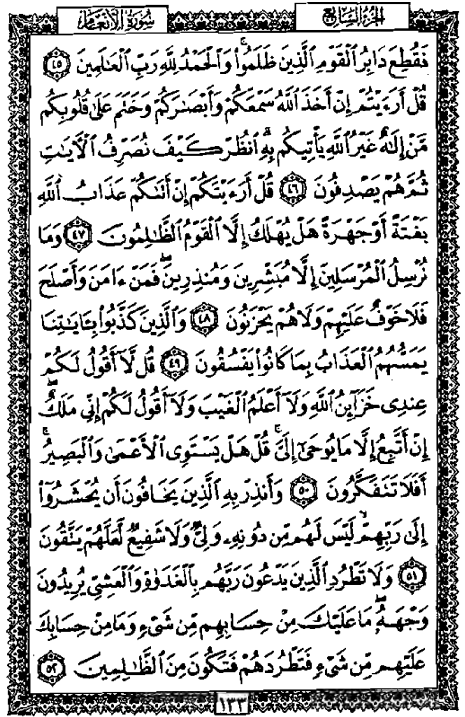 الجزء السابع
سورة الأنعام
فَقُطِعَ دَابِرُ الْقَوْمِ الَّذِينَ ظَلَمُوا۟ ۚ وَالْحَمْدُ لِلَّهِ رَبِّ الْعَٰلَمِينَ ٤٥
قُلْ أَرَءَيْتُمْ إِنْ أَخَذَ اللَّهُ سَمْعَكُمْ وَأَبْصَٰرَكُمْ وَخَتَمَ عَلَىٰ قُلُوبِكُم
مَّنْ إِلَٰهٌ غَيْرُ اللَّهِ يَأْتِيكُم بِهِ ۗ انظُرْ كَيْفَ نُصَرِّفُ الْءَايَٰتِ
ثُمَّ هُمْ يَصْدِفُونَ ٤٦ قُلْ أَرَءَيْتَكُمْ إِنْ أَتَىٰكُمْ عَذَابُ اللَّهِ
بَغْتَةً أَوْ جَهْرَةً هَلْ يُهْلَكُ إِلَّا الْقَوْمُ الظَّٰلِمُونَ ٤٧ وَمَا
نُرْسِلُ الْمُرْسَلِينَ إِلَّا مُبَشِّرِينَ وَمُنذِرِينَ ۖ فَمَنْ ءَامَنَ وَأَصْلَحَ
فَلَا خَوْفٌ عَلَيْهِمْ وَلَا هُمْ يَحْزَنُونَ ٤٨ وَالَّذِينَ كَذَّبُوا۟ بِـَٔايَٰتِنَا
يَمَسُّهُمُ الْعَذَابُ بِمَا كَانُوا۟ يَفْسُقُونَ ٤٩ قُل لَّا أَقُولُ لَكُمْ
عِندِى خَزَائِنُ اللَّهِ وَلَا أَعْلَمُ الْغَيْبَ وَلَا أَقُولُ لَكُمْ إِنِّى مَلَكٌ ۖ
إِنْ أَتَّبِعُ إِلَّا مَا يُوحَىٰ إِلَىَّ ۚ قُلْ هَلْ يَسْتَوِى الْأَعْمَىٰ وَالْبَصِيرُ ۚ
أَفَلَا تَتَفَكَّرُونَ ٥٠ وَأَنذِرْ بِهِ الَّذِينَ يَخَافُونَ أَن يُحْشَرُوا۟
إِلَىٰ رَبِّهِمْ ۙ لَيْسَ لَهُم مِّن دُونِهِۦ وَلِىٌّ وَلَا شَفِيعٌ لَّعَلَّهُمْ يَتَّقُونَ
٥١ وَلَا تَطْرُدِ الَّذِينَ يَدْعُونَ رَبَّهُم بِالْغَدَوٰةِ وَالْعَشِىِّ يُرِيدُونَ
وَجْهَهُ ۖ مَا عَلَيْكَ مِنْ حِسَابِهِم مِّن شَىْءٍ وَمَا مِنْ حِسَابِكَ
عَلَيْهِم مِّن شَىْءٍ فَتَطْرُدَهُمْ فَتَكُونَ مِنَ الظَّٰلِمِينَ ٥٢
١٣٣